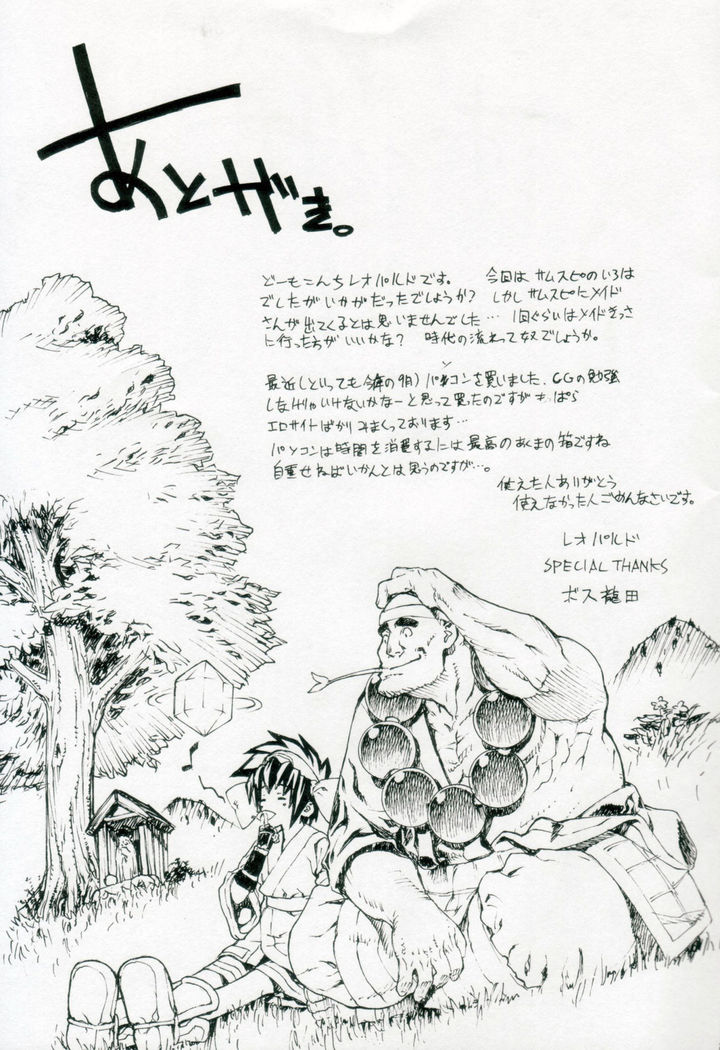 あとがき。
どーもこんちレオパルドです。 今回は サムスピのいろは
でしたがいかがだったでしょうか? しかしサムスピにメイド
さんが出てくるとは思いませんでした… 1回ぐらいはメイドきっさ
に行った方がいいかな? 時代の流れって奴でしょうか。
最近(といっても今年の9月)パソコンを買いました、CGの勉強
しなきゃいけないかなーと思って買ったのですがもっぱら
エロサイトばかりみまくっております…
パソコンは時間を消費するには最高のあくまの箱ですね
自重せねばいかんとは思うのですが…。
使えた人ありがとう
使えなかった人ごめんなさいです。
レオパルド
SPECIAL THANKS
ボス龍田